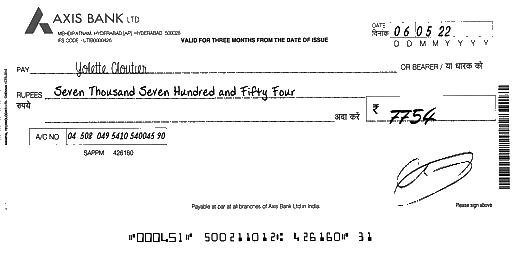 AXIS BANK LTD
MEHDIPATNAM, HYDERABAD [AP] HYDERABAD 500028
IFS CODE - UTIB0000426
VALID FOR THREE MONTHS FROM THE DATE OF ISSUE
DATE
दिनांक
06 05 22
D D M M Y Y Y Y
PAY Yolette Cloutier OR BEARER / या धारक को
RUPEES Seven Thousand Seven Hundred and Fifty Four
रुपये
अदा करें ₹ 7754
A/C NO 04 508 049 5410 540045 90
SAPPM 426160
Payable at par at all branches of Axis Bank Ltd in India.
Please sign above
⑈000451⑈ 500211012⑆ 426160⑈ 31